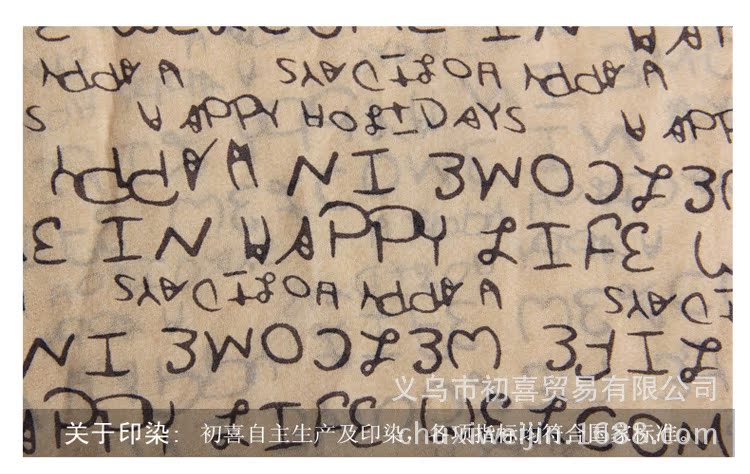 HAPPY HOLIDAYS HAPPY
S HAPPY HOLIDAYS HAPP
WELCOME IN HAPPY
E IN HAPPY LIFE
IDAYS HAPPY HOLIDAYS
LIFE WELCOME IN
APPY LIFE WELCOM
义乌市初喜贸易有限公司
关于印染: 初喜自主生产及印染，各项指标均符合国家标准。